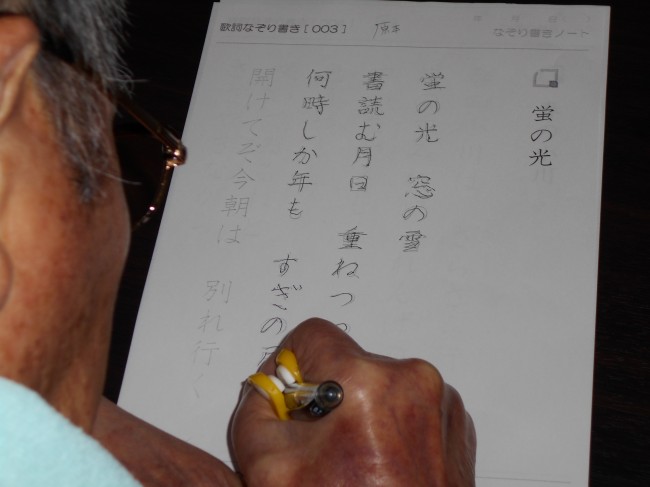 歌詞なぞり書き［003］
なぞり書きノート
蛍の光
蛍の光　窓の雪
書読む月日　重ねつつ
何時しか年も　すぎの
開けてぞ今朝は　別れ行く